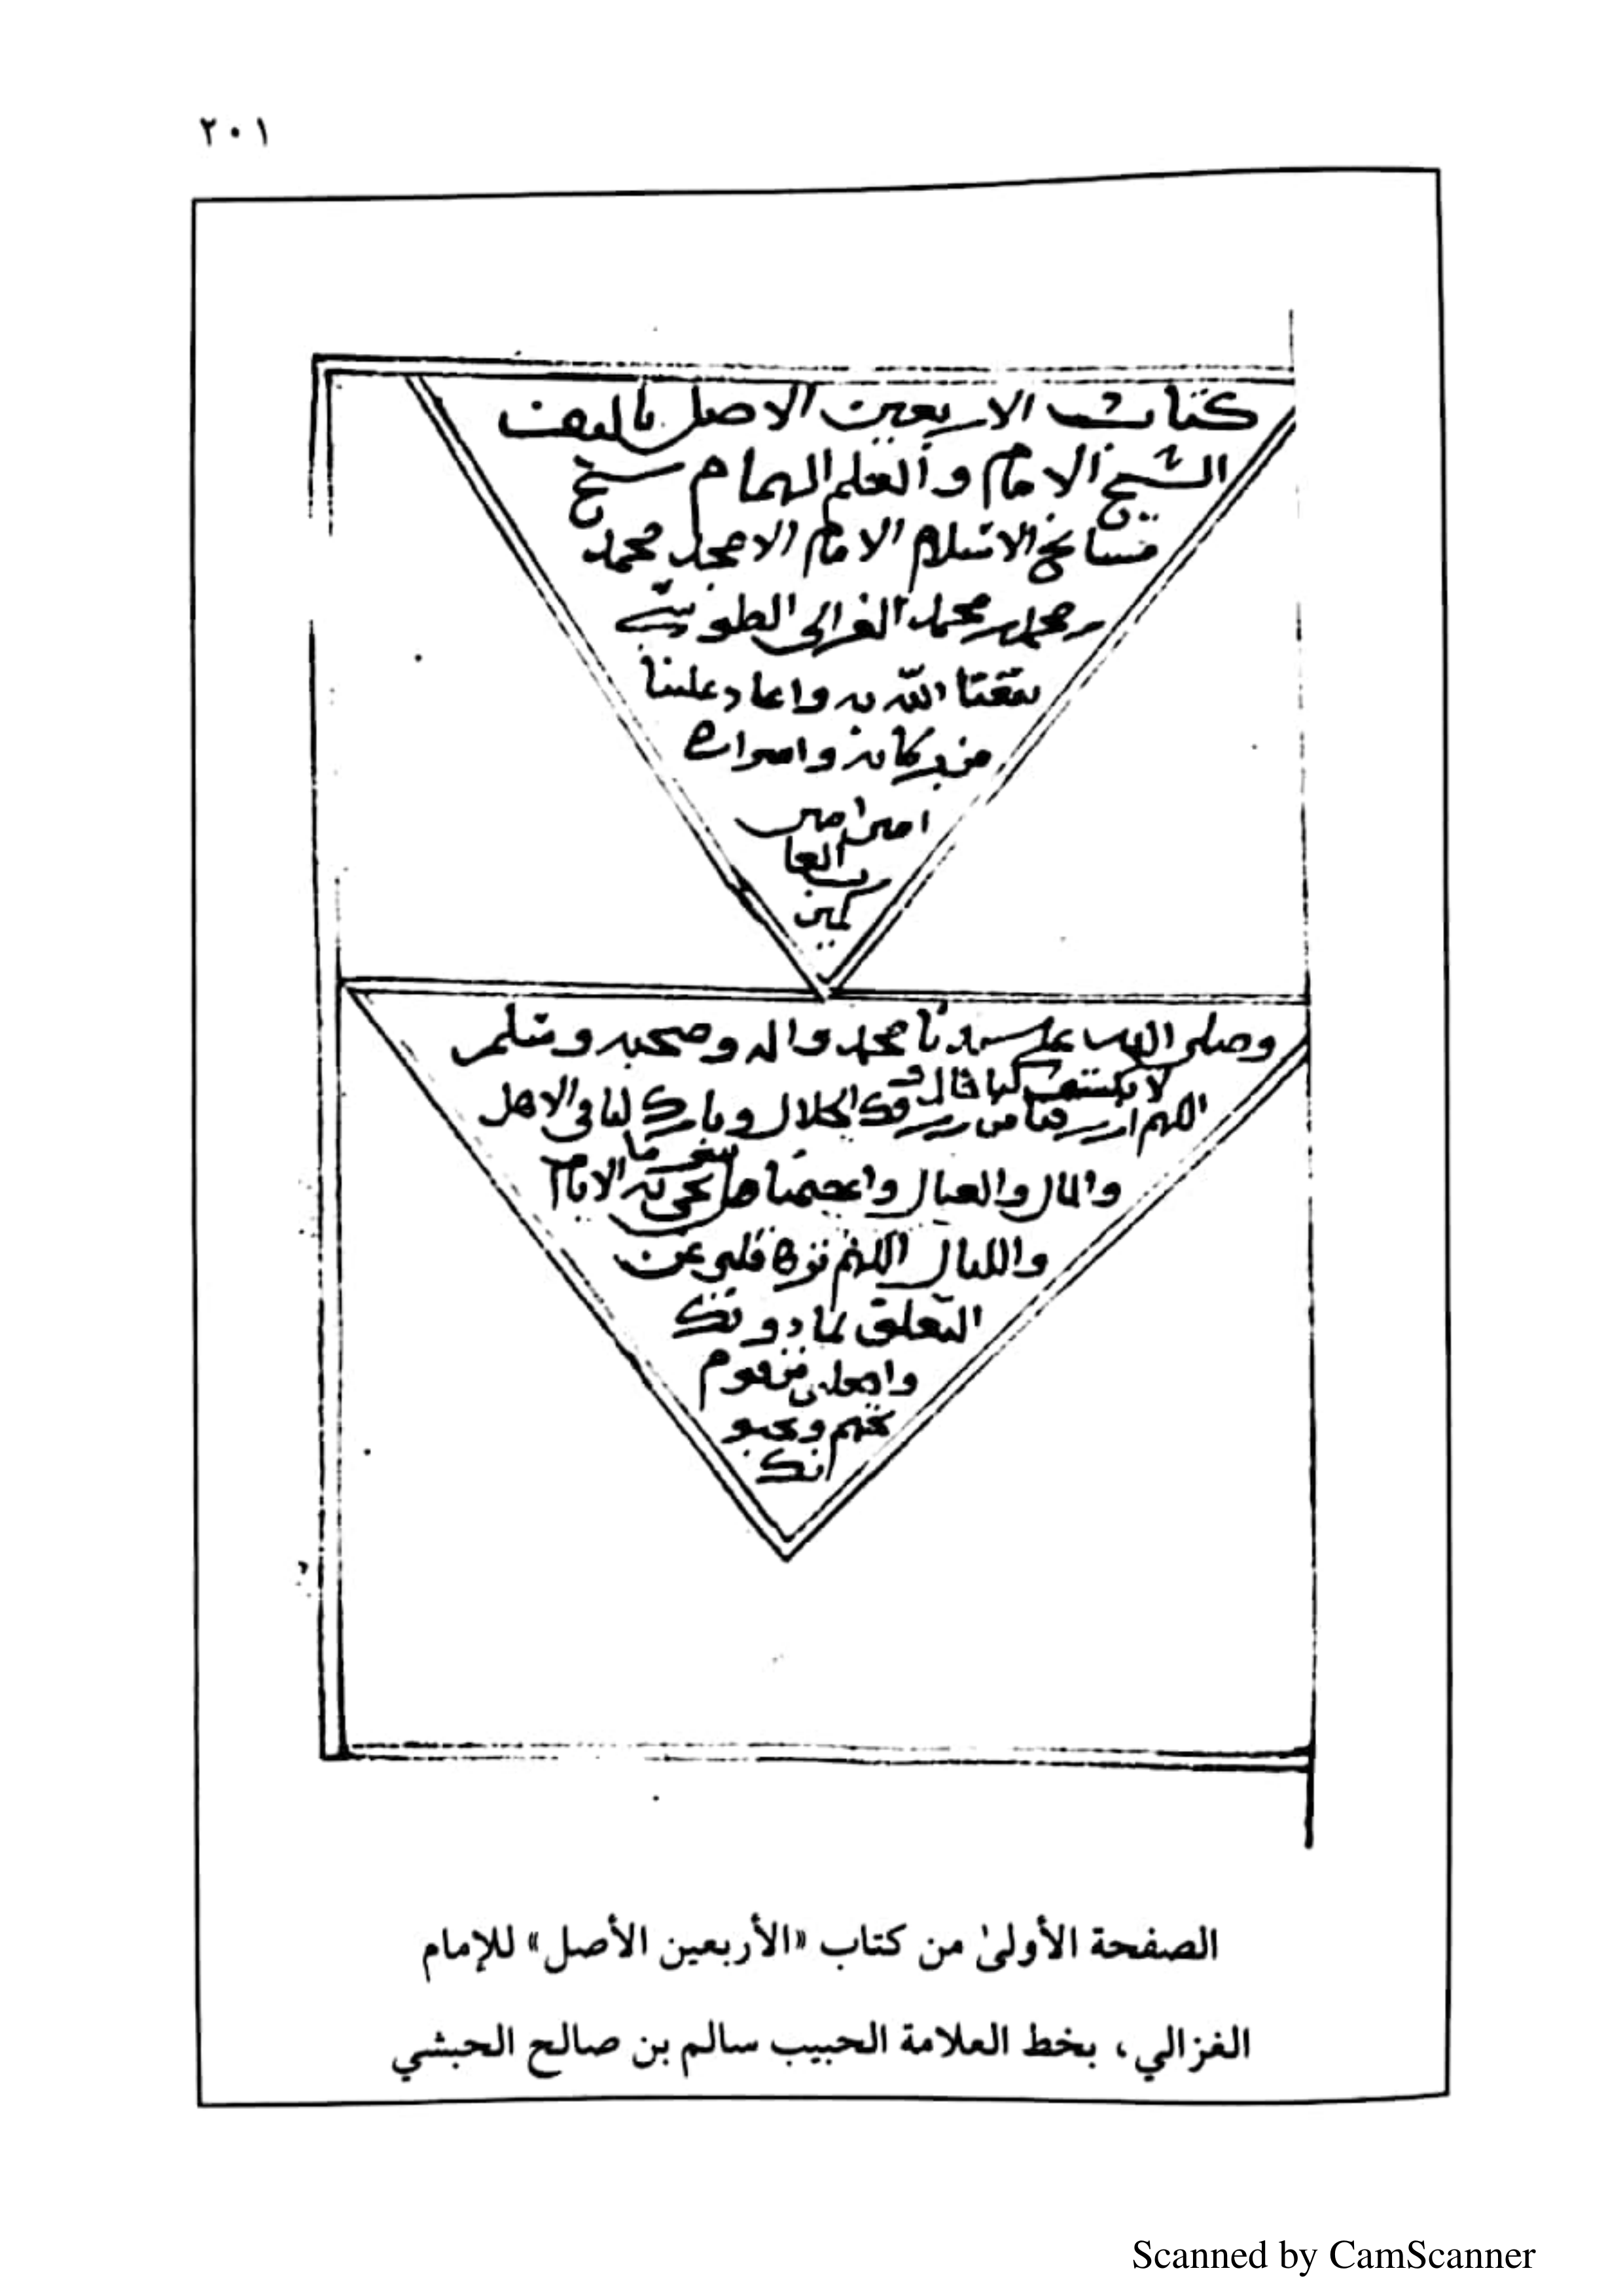 ٢٠١
كتاب الاربعين الاصل تاليف
الشيخ الامام والعلم الهمام شيخ
مشايخ الاسلام الامام الامجد محمد
بن محمد بن محمد الغزالي الطوسي
نفعنا الله به واعاد علينا
من بركاته واسراره
امين امين
رب العا
لمين
وصلى الله على سيدنا محمد واله وصحبه وسلم
اللهم ارزقنا من رزقك الحلال وبارك لنا في الاهل
والمال والعيال واعصمنا تجري به الايام
والليال اللهم نزه قلبي عن
التعلق بما دونك
واجعلني من قوم
تحبهم ويحبو
نك
الصفحة الأولىٰ من كتاب «الأربعين الأصل» للإمام
الغزالي، بخط العلامة الحبيب سالم بن صالح الحبشي
Scanned by CamScanner